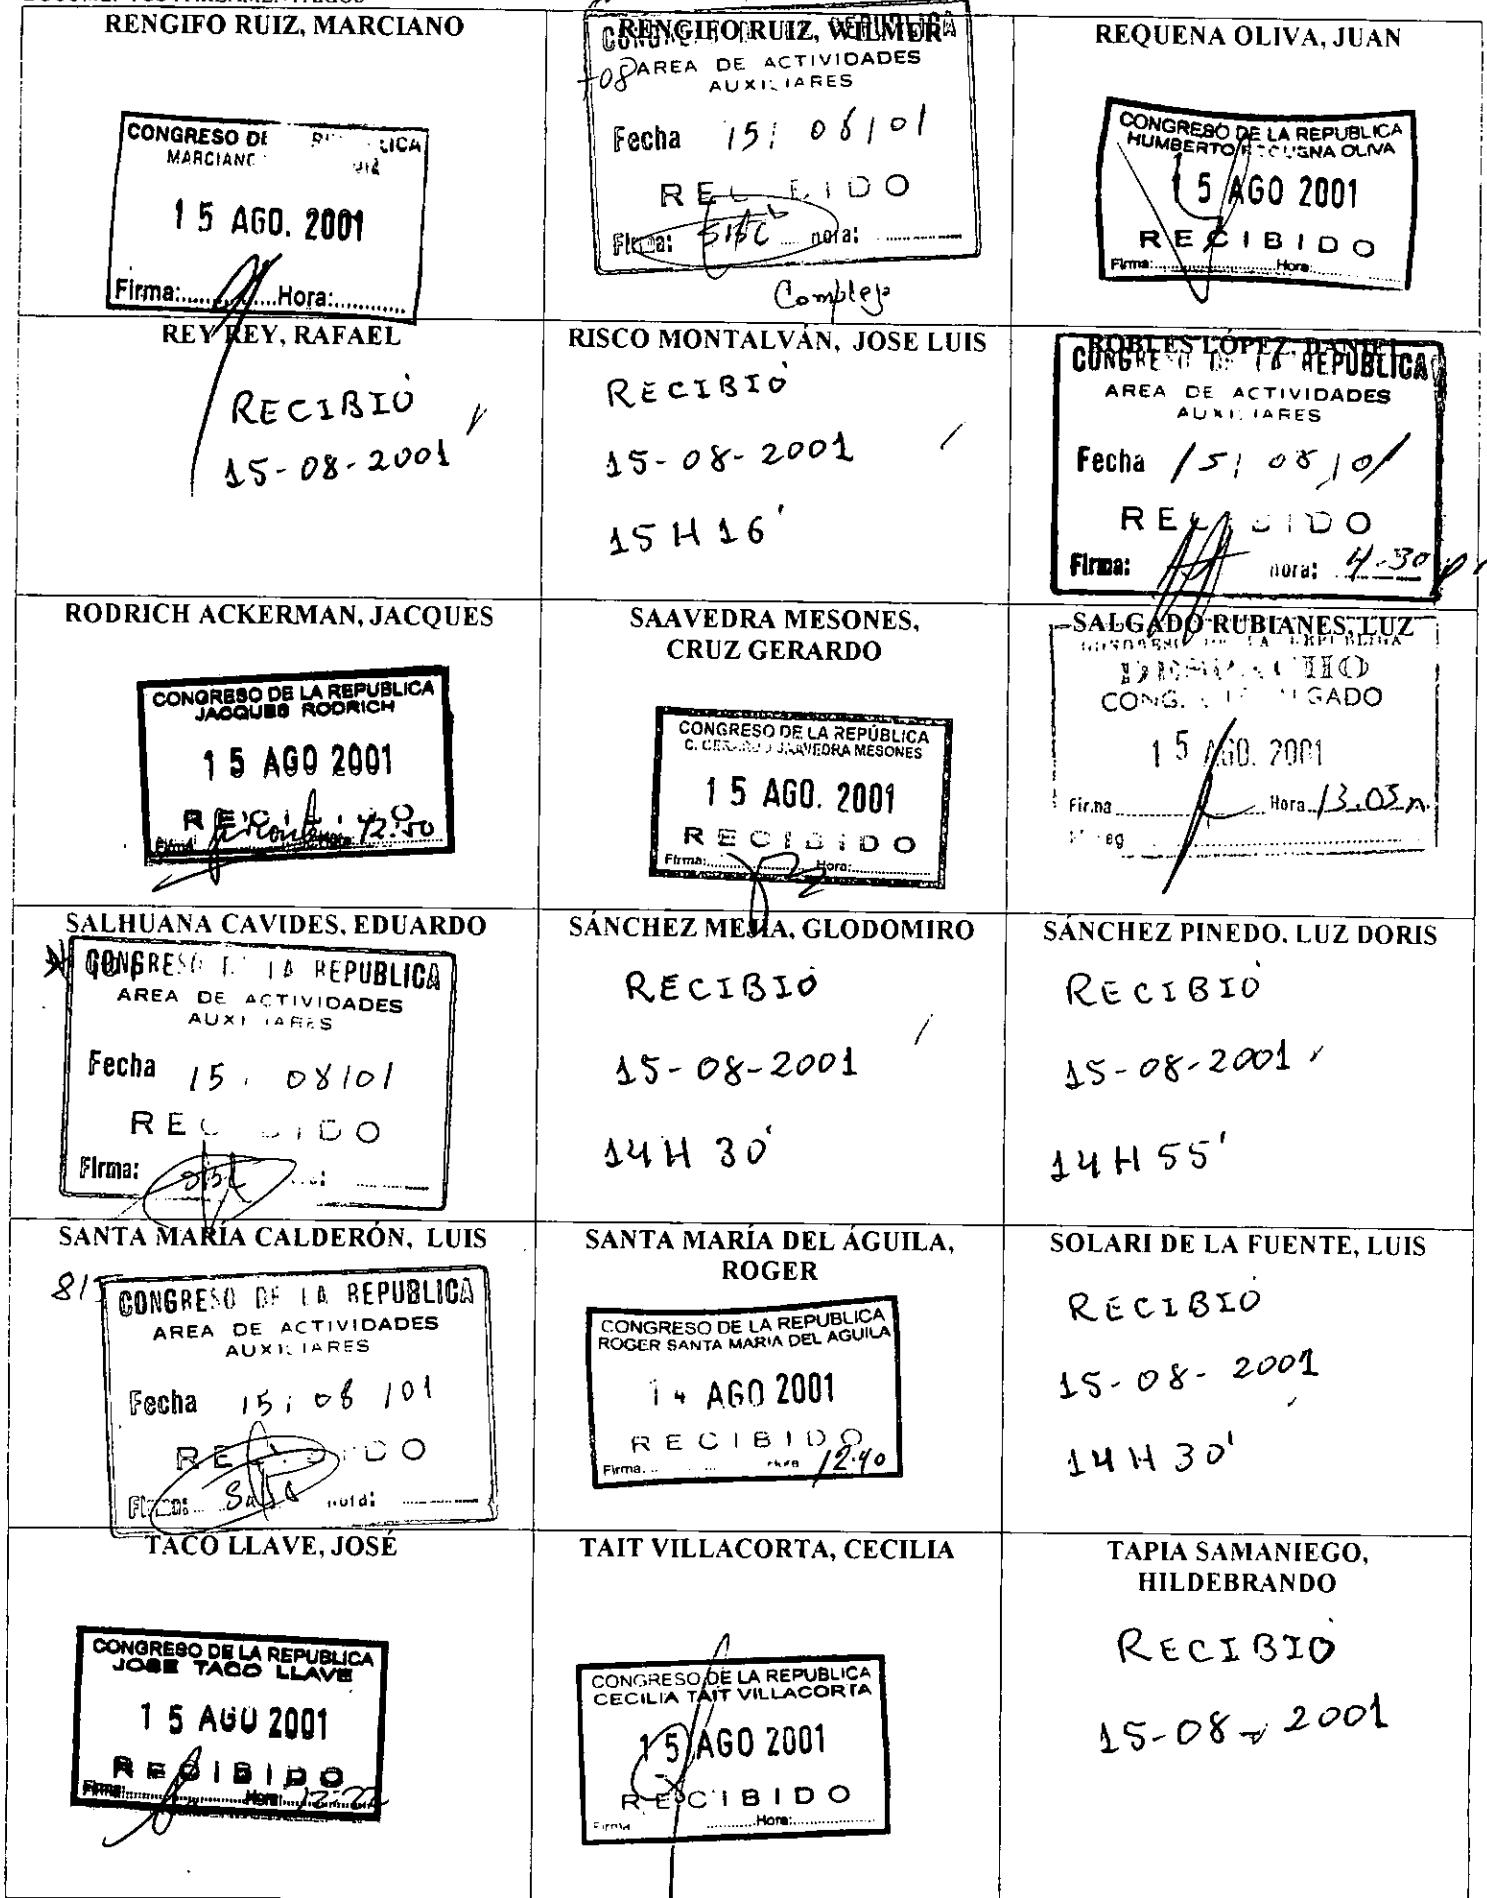 RENGIFO RUIZ, MARCIANO
CONGRESO DE
MARCIANO
15 AGO. 2001
Firma:............Hora:............
RENGIFO RUIZ, WILMER
AREA DE ACTIVIDADES
AUXILIARES
Fecha 15/08/01
RECIBIDO
Firma: hora:
Complejo
REQUENA OLIVA, JUAN
CONGRESO DE LA REPUBLICA
HUMBERTO REQUENA OLIVA
15 AGO 2001
RECIBIDO
Firma:............Hora:............
REY REY, RAFAEL
RECIBIÓ
15-08-2001
RISCO MONTALVÁN, JOSE LUIS
RECIBIÓ
15-08-2001
15 H 16'
ROBLES LÓPEZ, DANIEL
CONGRESO DE LA REPUBLICA
AREA DE ACTIVIDADES
AUXILIARES
Fecha 15/08/01
RECIBIDO
Firma: hora: 4.30
RODRICH ACKERMAN, JACQUES
CONGRESO DE LA REPUBLICA
JACQUES RODRICH
15 AGO 2001
RECIBIDO
SAAVEDRA MESONES,
CRUZ GERARDO
CONGRESO DE LA REPÚBLICA
C. GERARDO SAAVEDRA MESONES
15 AGO. 2001
RECIBIDO
Firma:............Hora:............
SALGADO RUBIANES, LUZ
DESPACHO
SALGADO
15 AGO. 2001
Firma Hora 13.05
SALHUANA CAVIDES, EDUARDO
CONGRESO DE LA REPUBLICA
AREA DE ACTIVIDADES
AUXILIARES
Fecha 15/08/01
RECIBIDO
Firma:
SÁNCHEZ MEJÍA, GLODOMIRO
RECIBIÓ
15-08-2001
14 H 30'
SÁNCHEZ PINEDO, LUZ DORIS
RECIBIÓ
15-08-2001
14 H 55'
SANTA MARÍA CALDERÓN, LUIS
CONGRESO DE LA REPUBLICA
AREA DE ACTIVIDADES
AUXILIARES
Fecha 15/08/01
RECIBIDO
Firma: hora:
SANTA MARÍA DEL ÁGUILA,
ROGER
CONGRESO DE LA REPUBLICA
ROGER SANTA MARIA DEL AGUILA
14 AGO 2001
RECIBIDO
Firma... Hora 12.40
SOLARI DE LA FUENTE, LUIS
RECIBIÓ
15-08-2001
14 H 30'
TACO LLAVE, JOSÉ
CONGRESO DE LA REPUBLICA
JOSE TACO LLAVE
15 AGO 2001
RECIBIDO
Firma:............Hora: 12:22
TAIT VILLACORTA, CECILIA
CONGRESO DE LA REPUBLICA
CECILIA TAIT VILLACORTA
15 AGO 2001
RECIBIDO
Firma ............Hora:............
TAPIA SAMANIEGO,
HILDEBRANDO
RECIBIÓ
15-08-2001